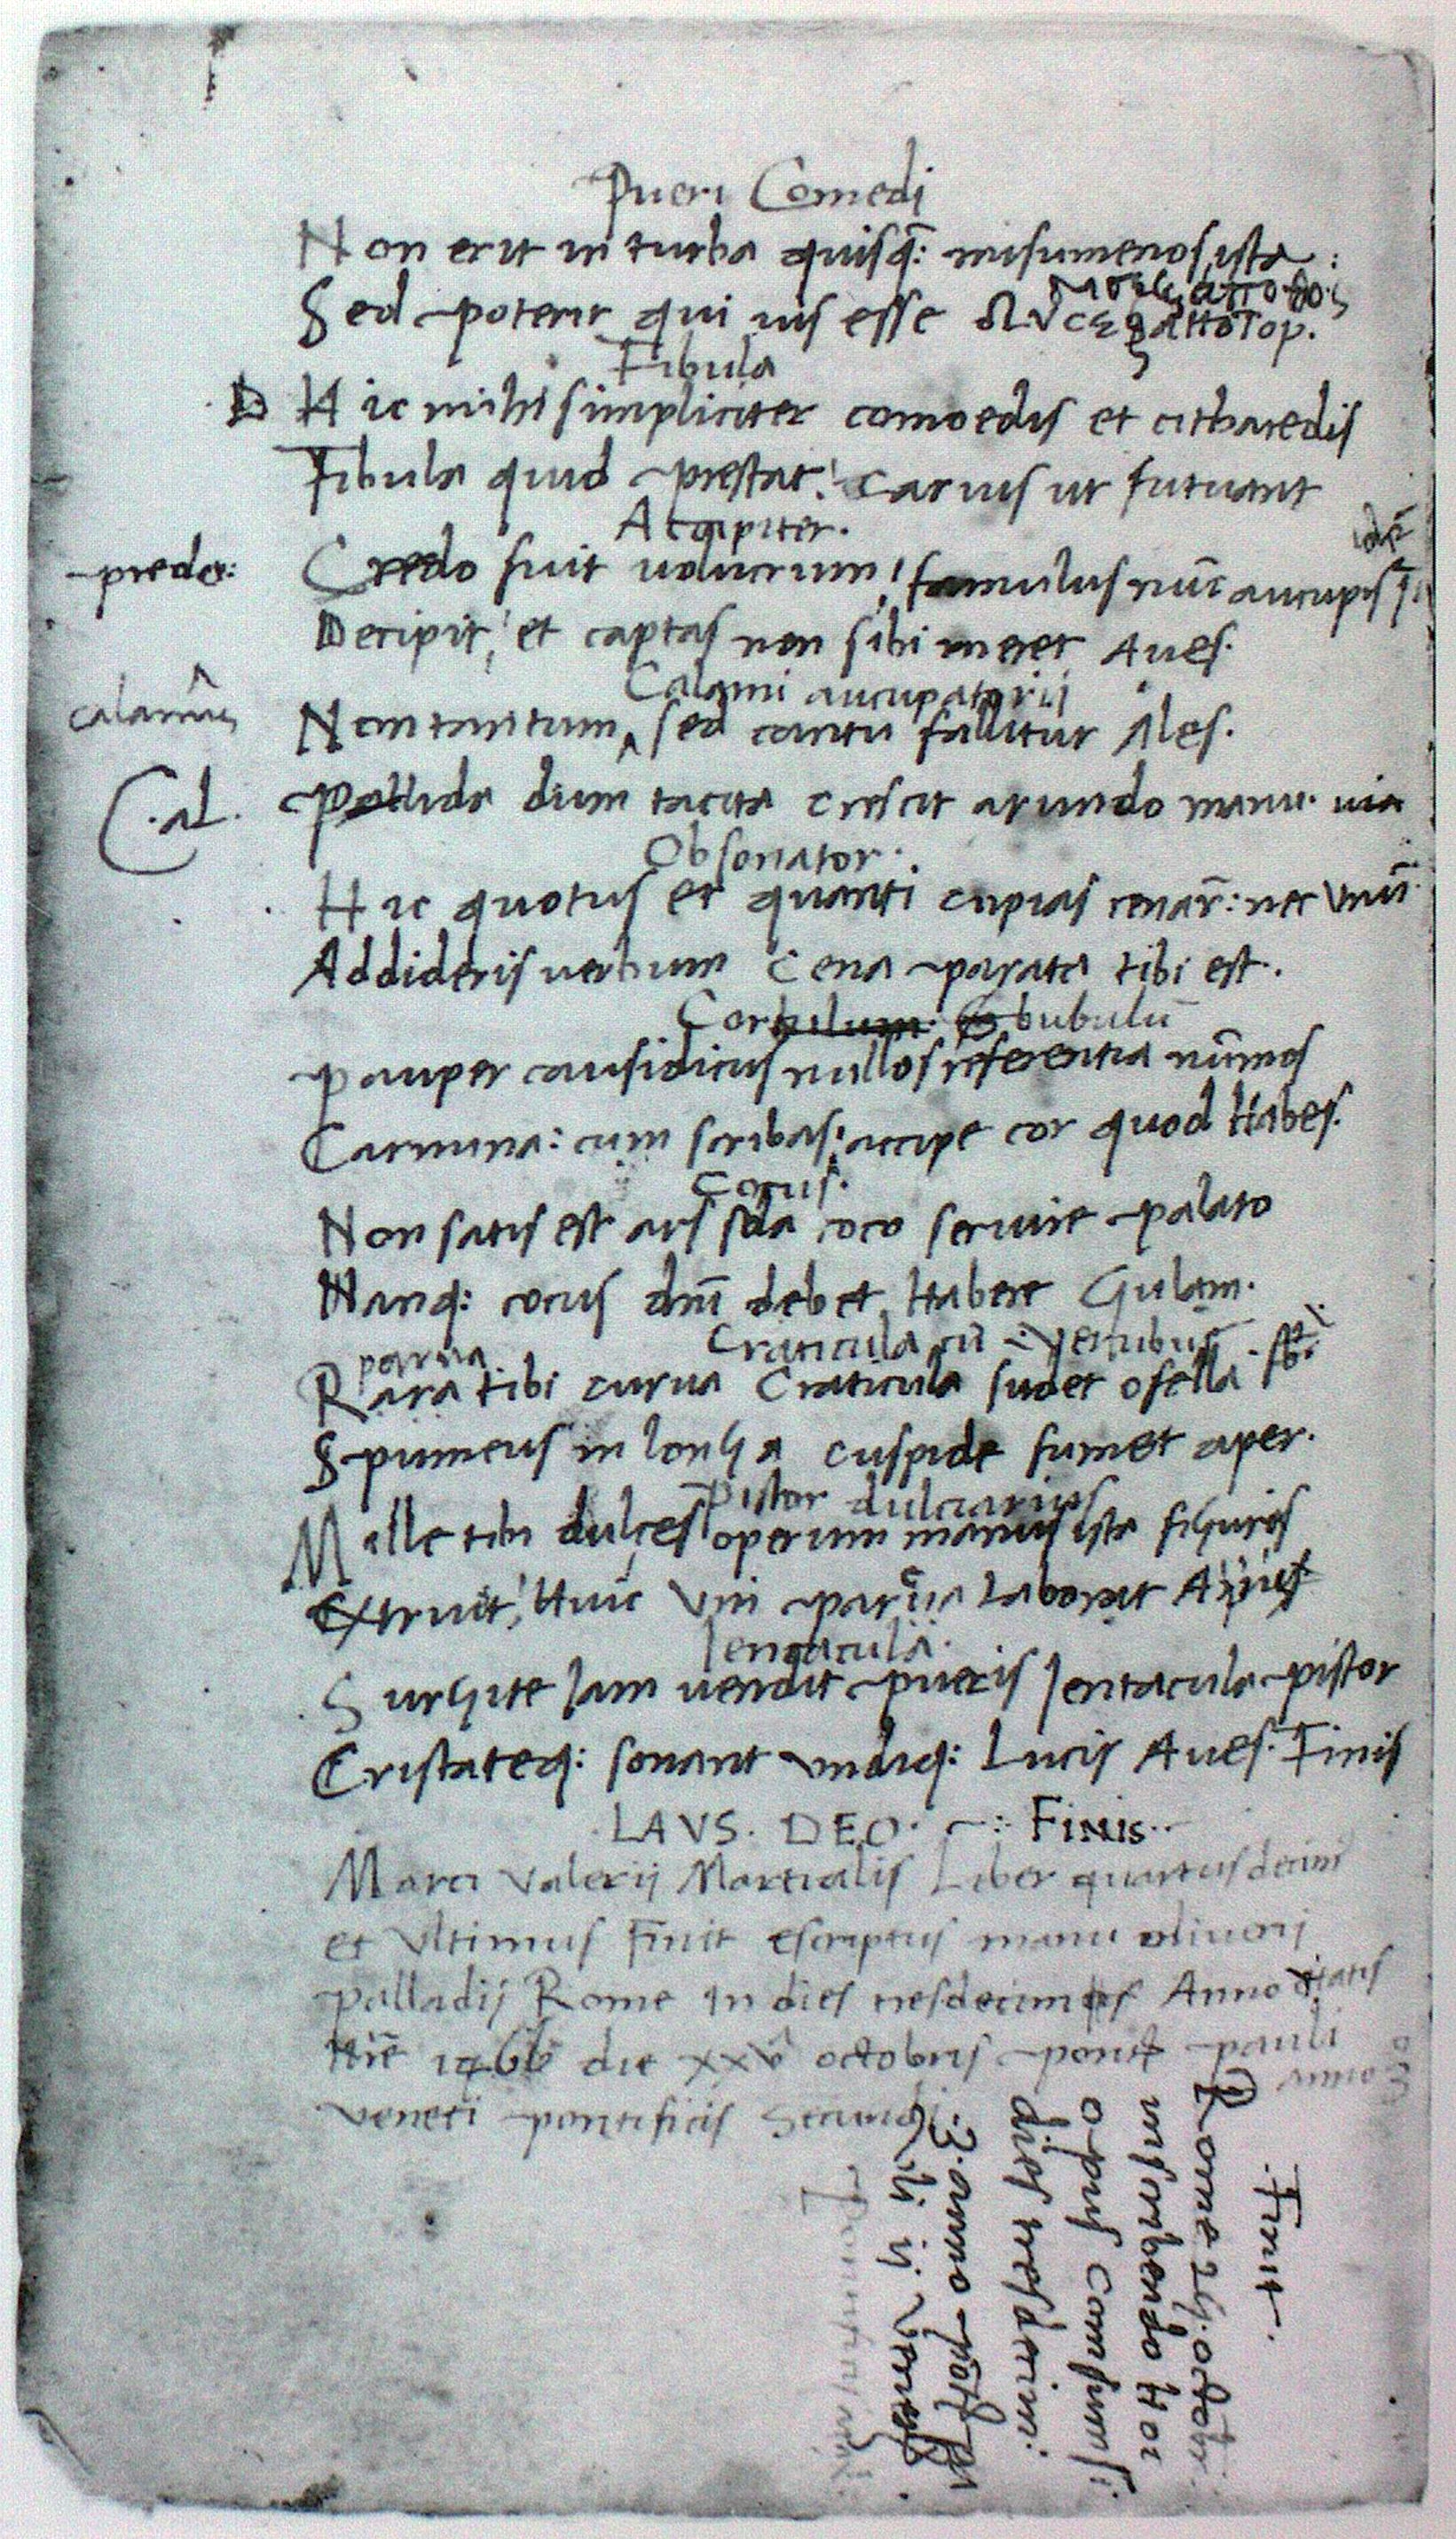 Pueri Comedi
Non erit in turba quisq: misumenos ista:
Sed poterit qui uis esse
Fibula
D Hic mihi simpliciter comoedis et citharedis
Fibula quid prestat! carius ut futuant
Accipiter.
predo: Credo fuit uolucrum! famulus nūc aucupis
Decipit, et captas non sibi meret Aues.
Calami aucupatorii
calamis Non tantum sed cantu fallitur Ales.
Cal. pallida dum tacita crescit arundo manu.
Obsonator.
Hic quotus et quanti cupias cenar̄: nec unū
Addideris uerbum Cena parata tibi est.
Cor bubulū
pauper causidicus nullos referentia nūmos
Carmina: cum scribas: accipe cor quod Habes.
Cocus.
Non satis est ars sola coco seruire palato
Nanq: cocus dnī debet Habere Gulam.
Craticula cū Verubus
parua
Rara tibi curua Craticula sudet ofella
Spumeus in longa cuspide fumet aper.
Pistor dulciarius
Mille tibi dulces operum manus ista figuras
Extruit, Huic Vni parca Laborat Apis
Ientacula.
Surgite Iam uendit pueris Ientacula pistor
Cristateq: sonant undiq: Lucis Aues. Finis
LAVS. DEO. Finis..
Marci Valerij Martialis Liber quartusdecim
et Vltimus Finit escriptus manu oliuerij
palladij Rome In dies tresdecim Anno
1466 die xxv octobris pauli
anno 3
Veneti pontificis Secundi.
Finit.
Rome 25. octobr.
inscribendo Hoc
opus consumsi:
dies tresdecim:
3. anno
ij